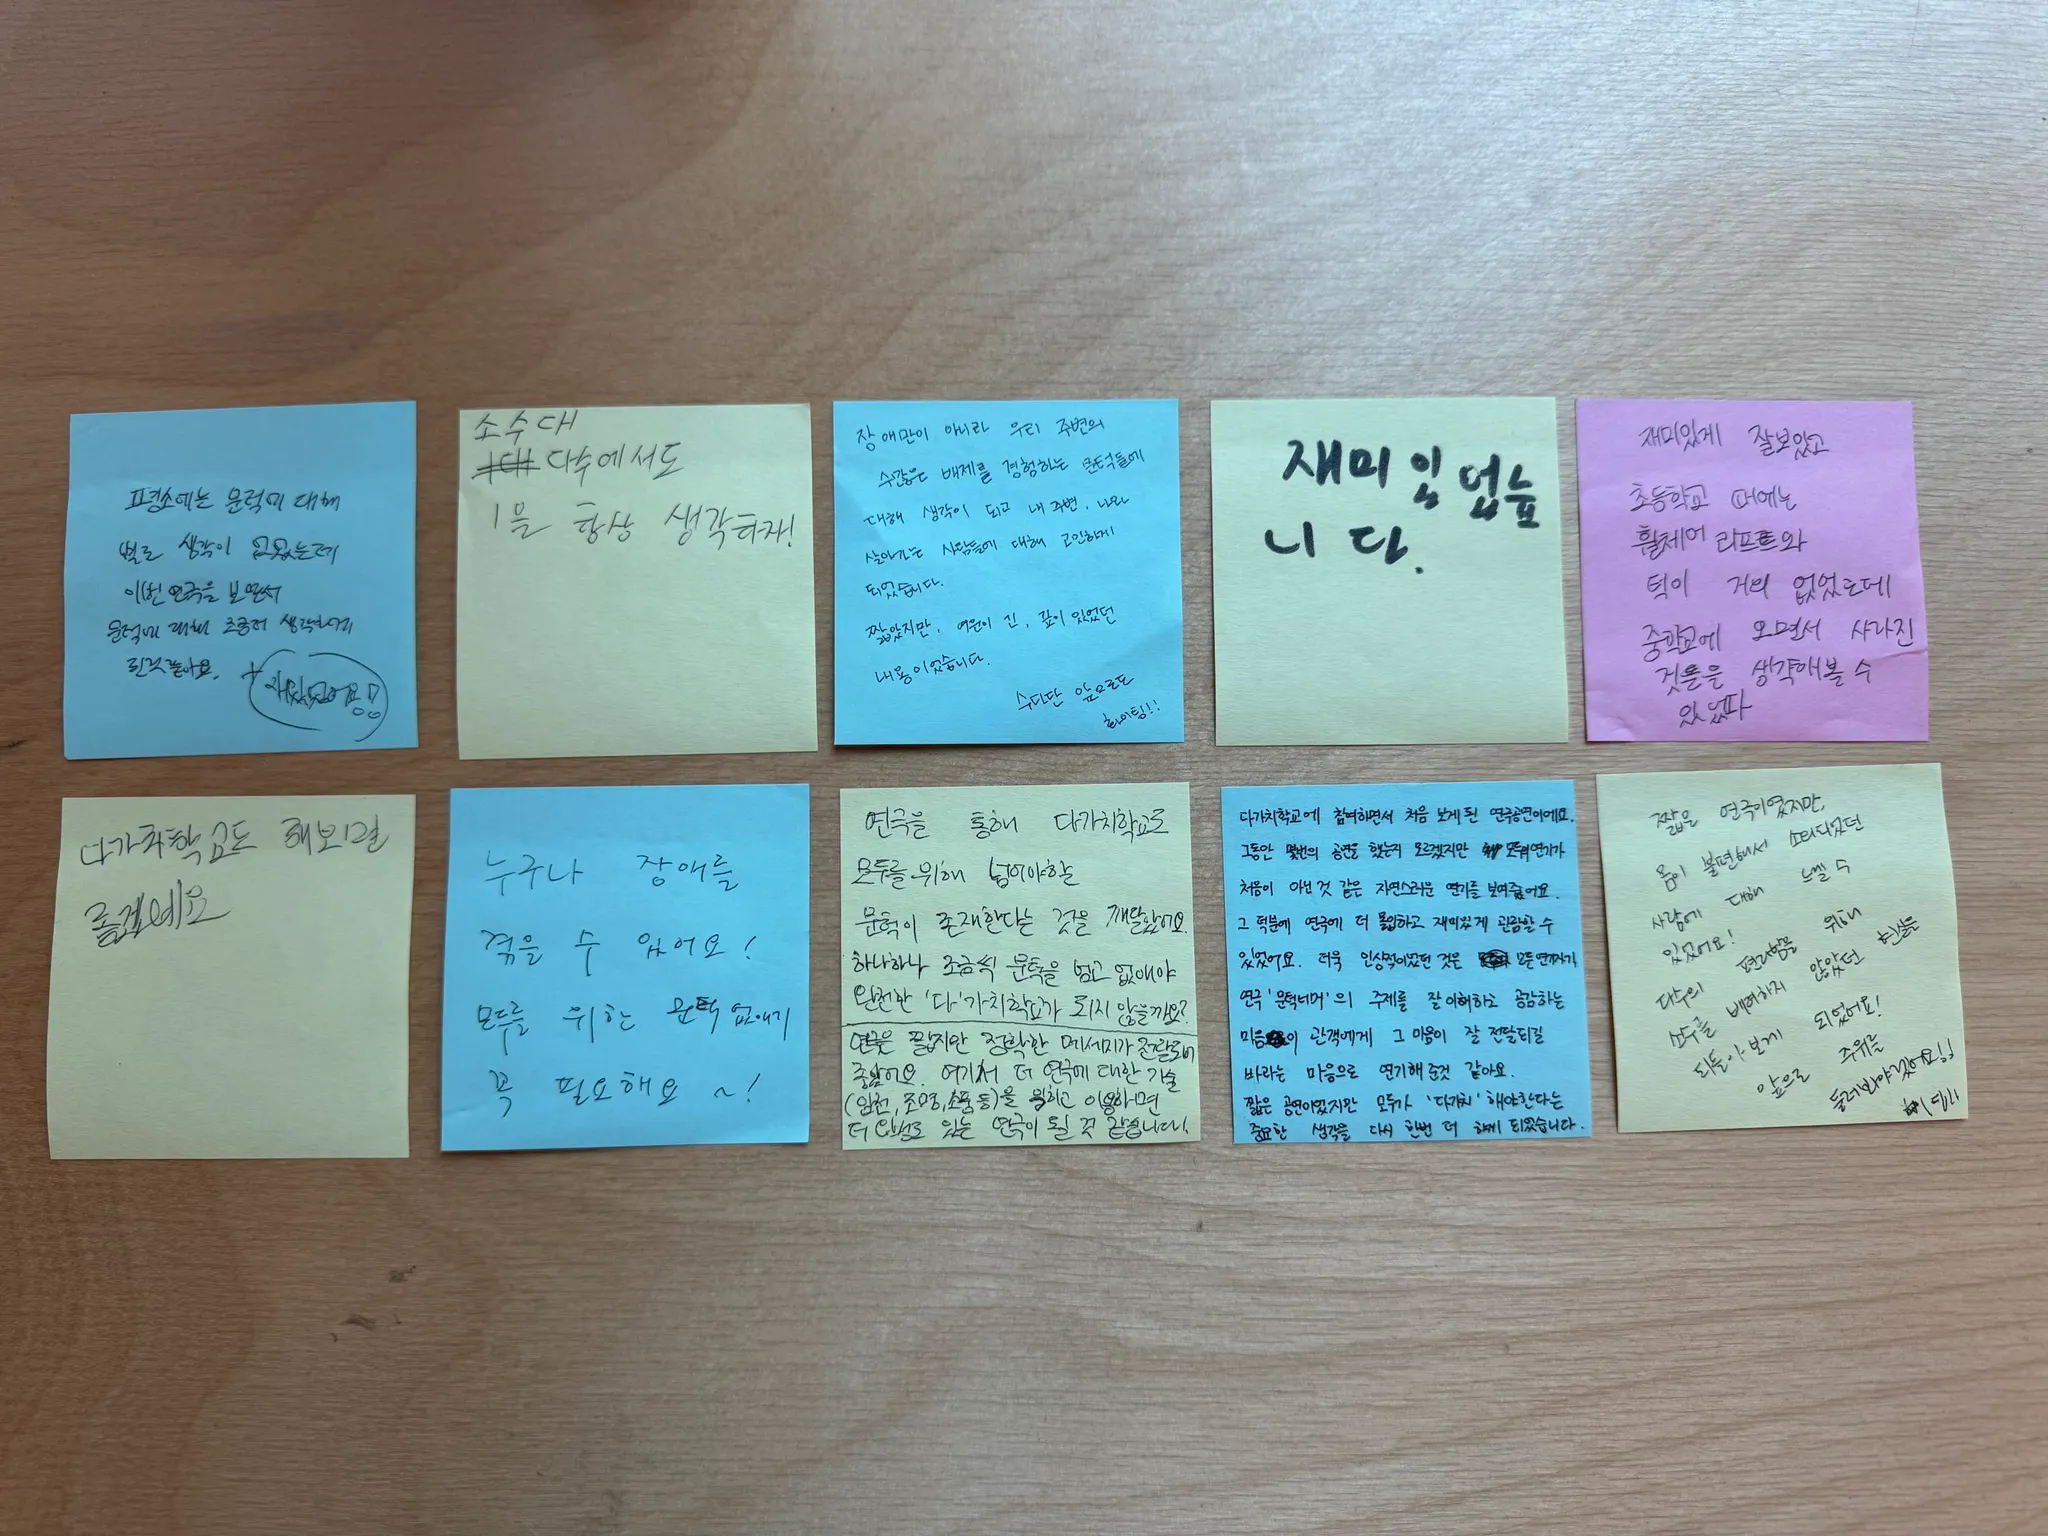 평소에는 문턱에 대해
별로 생각이 없었는데
이번 연극을 보면서
문턱에 대해 조금더 생각하게
된것같아요.
+ 재밌었어요!!
소수 대
다수에서도
1을 항상 생각하자!
장애만이 아니라 우리 주변의
수많은 배제를 경험하는 문턱들에
대해 생각이 되고 내 주변, 나와
살아가는 사람들에 대해 고민하게
되었습니다.
짧았지만, 여운이 긴, 깊이 있었던
내용이었습니다.
수다단 앞으로도
화이팅!!
재미있었습
니다.
재미있게 잘보았고
초등학교 때에는
휠체어 리프트와
턱이 거의 없었는데
중학교에 오면서 사라진
것들을 생각해볼 수
있었다
다가치학교도 해보시길
좋겠네요
누구나 장애를
겪을 수 있어요!
모두를 위한 문턱 없애기
꼭 필요해요~!
연극을 통해 다가치학교도
모두를 위해 넘어야할
문턱이 존재한다는 것을 깨달았어요.
하나하나 조금씩 문턱을 넘고 없애야
완전한 '다'가치학교가 되지 않을까요?
연극은 짧지만 정확한 메세지가 전달되어
좋았어요. 여기서 더 연극에 대한 기술
(음향, 조명, 소품 등)을 익히고 이용하면
더 완성도 있는 연극이 될 것 같습니다!
다가치학교에 참여하면서 처음 보게 된 연극공연이에요.
그동안 몇번의 공연을 했는지 모르겠지만 모두의 연기가
처음이 아닌 것 같은 자연스러운 연기를 보여줬어요.
그 덕분에 연극에 더 몰입하고 재미있게 관람할 수
있었어요. 더욱 인상적이었던 것은 모든 연기자가
연극 '문턱너머'의 주제를 잘 이해하고 공감하는
마음이 관객에게 그 마음이 잘 전달되길
바라는 마음으로 연기해 준것 같아요.
짧은 공연이었지만 모두가 '다가치' 해야한다는
중요한 생각을 다시 한번 더 하게 되었습니다.
짧은 연극이였지만,
몸이 불편해서 소외되었던
사람에 대해 느낄 수
있었어요!
다수의 편리함을 위해
소수를 배려하지 않았던 현실을
되돌아 보게 되었어요!
앞으로 주위를
둘러봐야겠어요!!